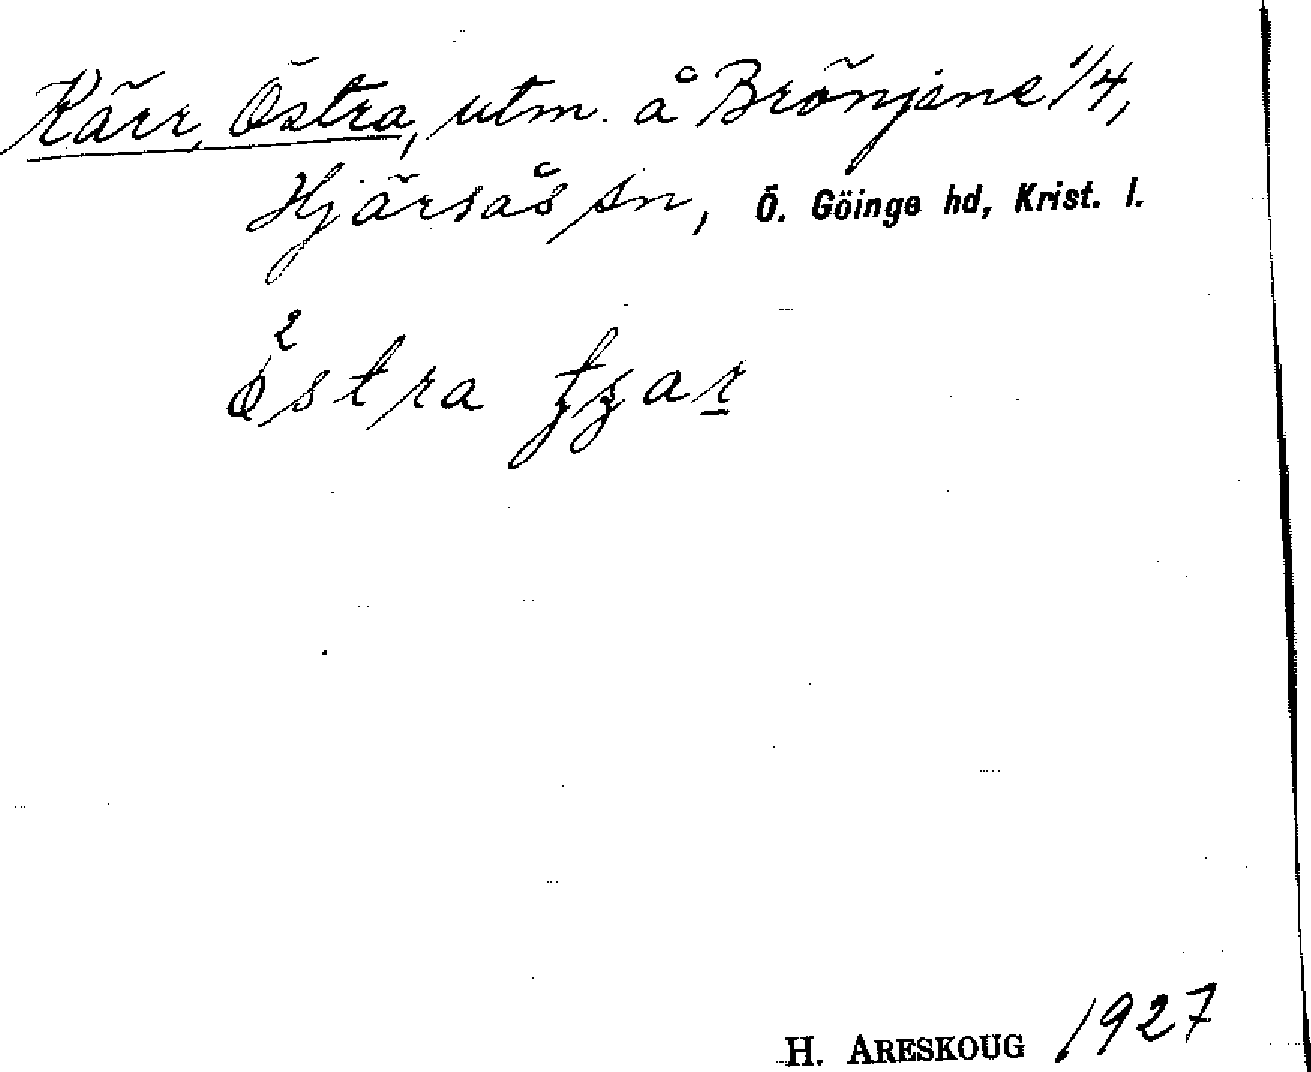 Kärr, Östra, utm. å Brönjene 1/4,
Hjärsås sn, Ö. Göinge hd, Krist. l.
östra
H. ARESKOUG 1927